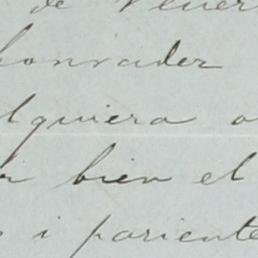 de Vener
honrader
lquiera o
r bien el
s i pariente